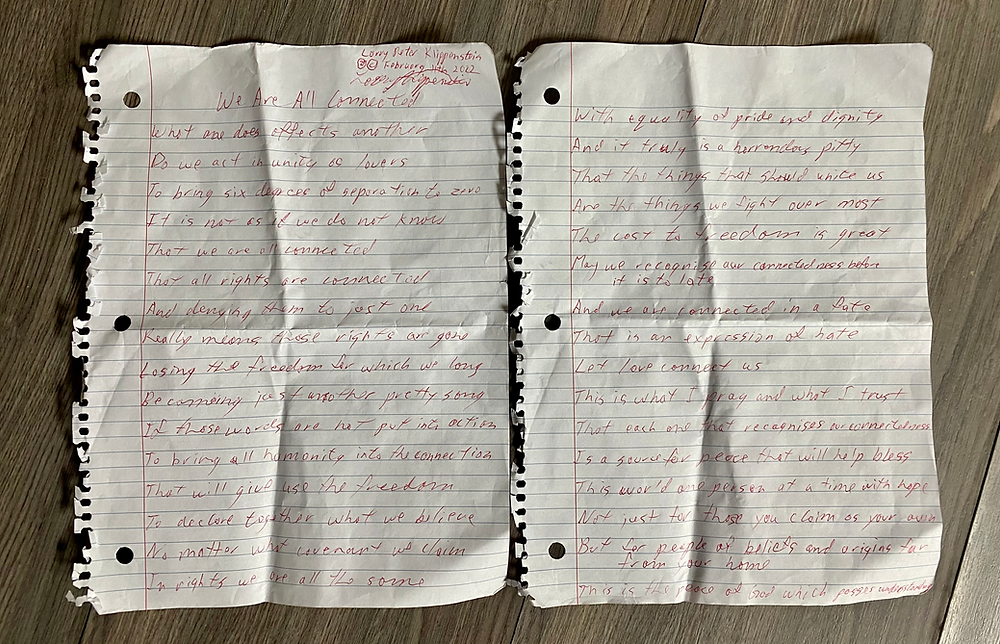 Larry Peter Klippenstein
© February 11th 2022
We Are All Connected
What one does effects another
Do we act in unity as lovers
To bring six degrees of separation to zero
It is not as if we do not know
That we are all connected
That all rights are connected
And denying them to just one
Really means those rights are gone
Losing the freedom for which we long
Becomeing just another pretty song
If those words are not put into action
To bring all humanity into the connection
That will give use the freedom
To declare together what we believe
No matter what covenant we claim
In rights we are all the same
With equality of pride and dignity
And it truly is a horrendous pitty
That the things that should unite us
Are the things we fight over most
The cost to freedom is great
May we recognise our connectedness before
it is to late
And we are connected in a fate
That is an expression of hate
Let love connect us
This is what I pray and what I trust
That each one that recognises our connectedness
Is a source for peace that will help bless
This world one person at a time with hope
Not just for those you claim as your own
But for people of beliefs and origins far
from your home
This is the peace of God which passes understanding